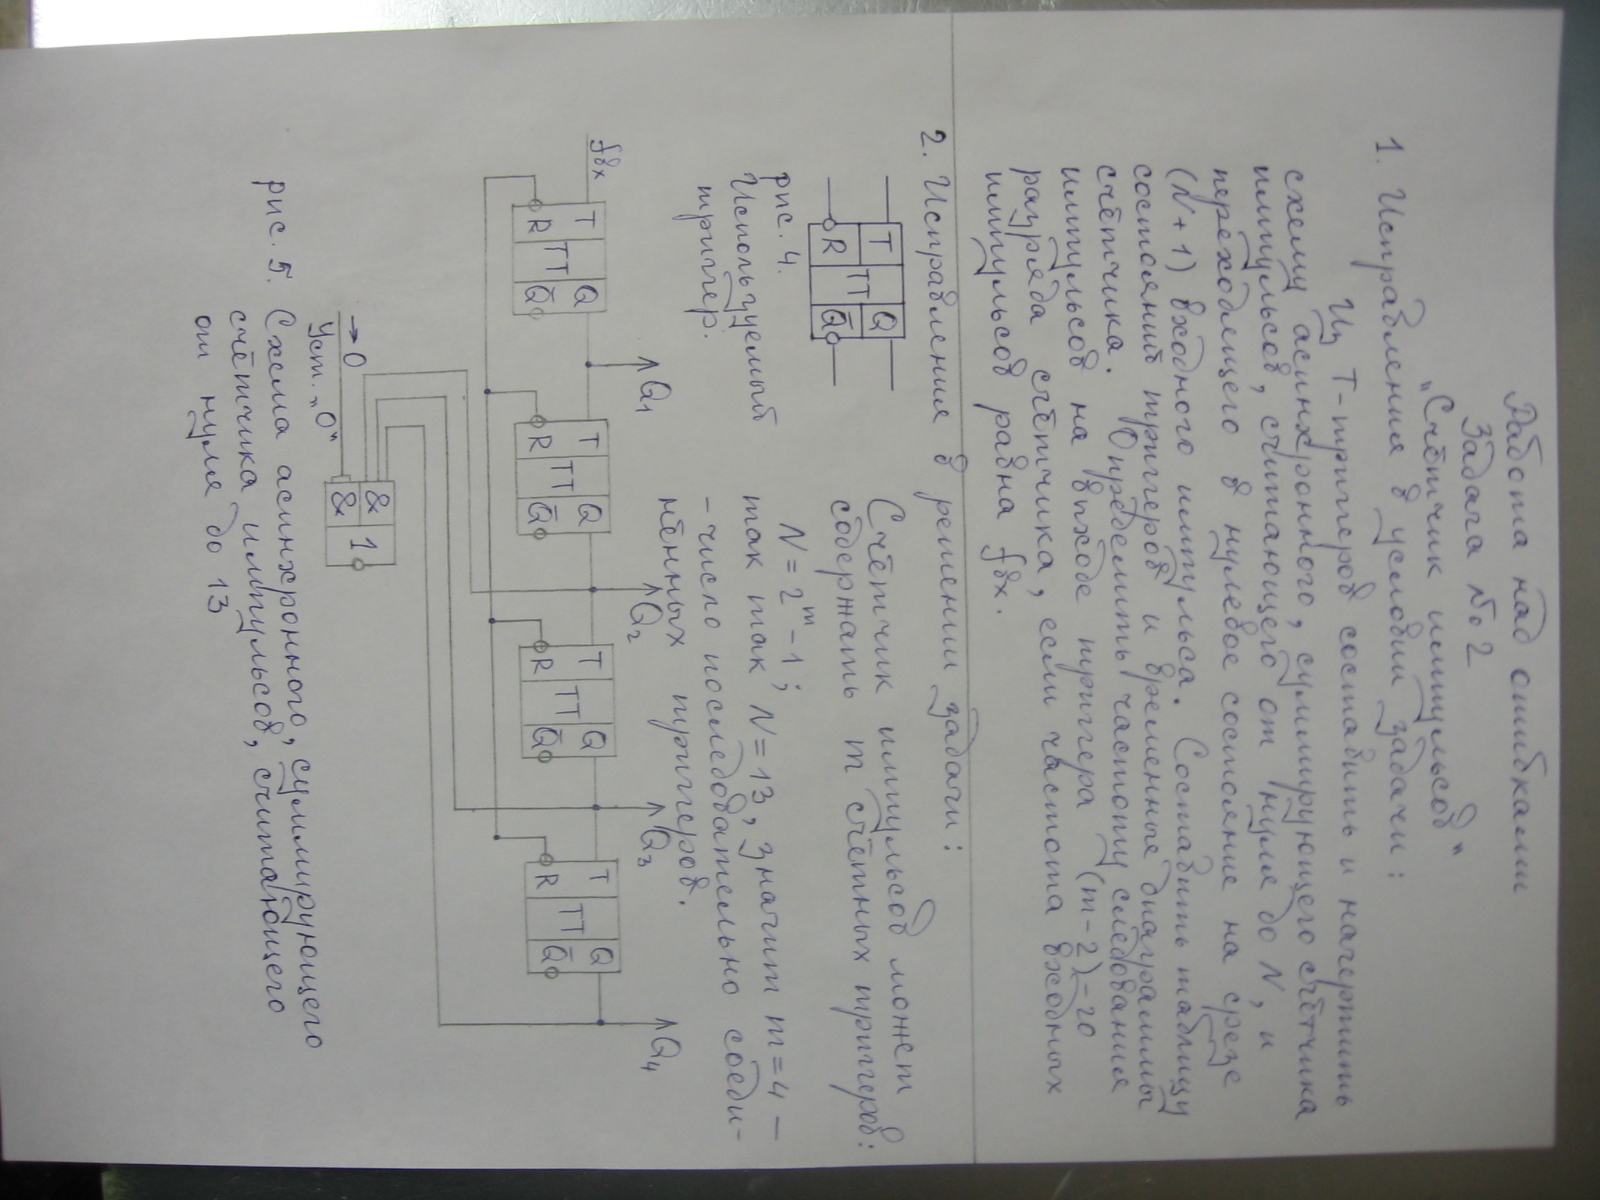 Работа над ошибками
Задача № 2
„Счётчик импульсов"
1. Исправления в условии задачи:
Из Т-триггеров составить и начертить
схему асинхронного, суммирующего счётчика
импульсов, считающего от нуля до N, и
переходящего в нулевое состояние на срезе
(N+1) входного импульса. Составить таблицу
состояний триггеров и временные диаграммы
счётчика. Определить частоту следования
импульсов на выходе триггера (m-2)-го
разряда счётчика, если частота входных
импульсов равна fвх.
2. Исправления в решении задачи:
T
TT
Q
R
Q̅
рис. 4.
Используемый
триггер.
Счётчик импульсов может
содержать m счётных триггеров:
N = 2^m - 1;
так как N = 13, значит m = 4 —
- число последовательно соеди-
нённых триггеров.
fвх
T TT Q
R Q̅
Q₁
T TT Q
R Q̅
Q₂
T TT Q
R Q̅
Q₃
T TT Q
R Q̅
Q₄
→0
Уст. „0"
& 1
&
рис. 5. Схема асинхронного, суммирующего
счётчика импульсов, считающего
от нуля до 13